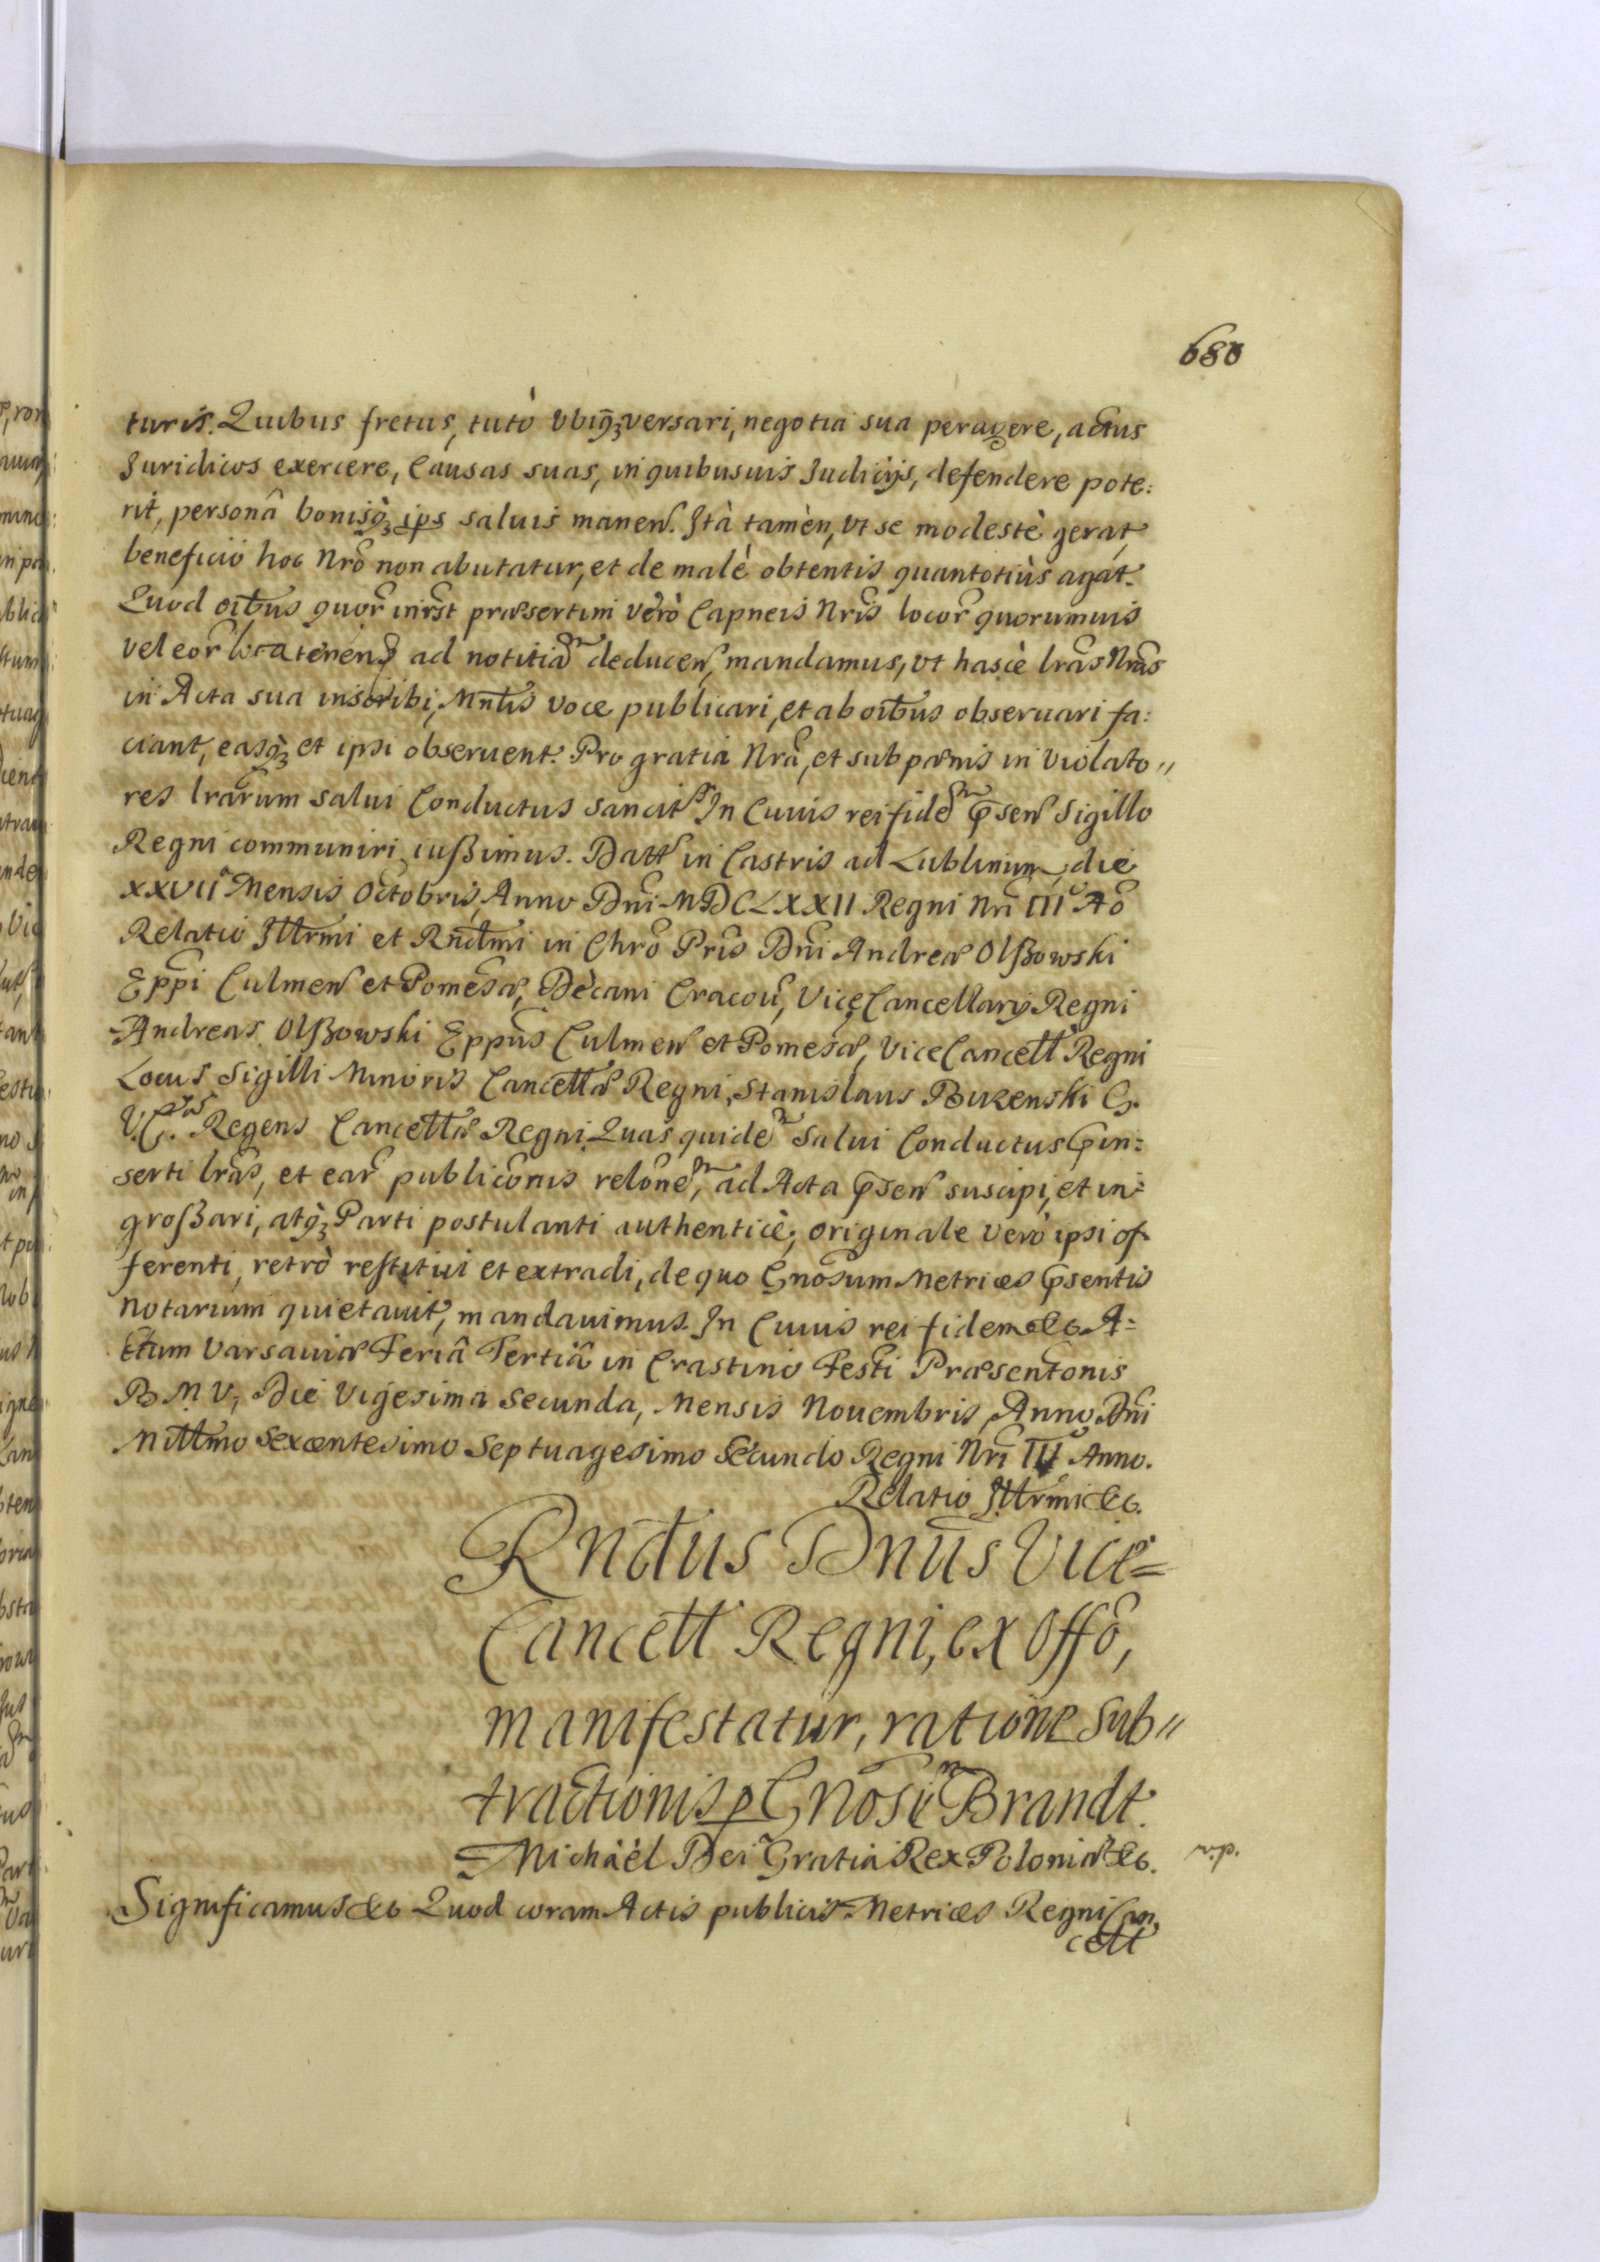 680
turis. Quibus fretus, tutò vbiq̃ꝫ versari, negotia sua peragere, actus
Juridicos exercere, Causas suas, in quibusuis Judicijs, defendere pote:
rit, personâ bonisq̃ꝫ ips saluis manen. Ità tamèn, vt se modestè gerat,
beneficio hoc Nrõ non abutatur, et de malè obtentis quantotiùs agat.
Quod oĩbus quor̃ inrẽst præsertim verò Capneis Nrĩs locor̃ quorumuis
vel eor̃ locateñen ad notitiã deducen, mandamus, vt hascè lrãs Nrãs
in Acta sua inscribi, Mnĩs voce publicari, et ab oĩbus obseruari fa:
ciant, easq̃ꝫ et ipsi obseruent. Pro gratia Nrã, et sub pœnis in violato"
res lrãrum salui Conductus sancit. In Cuius rei fidẽm p̃sen Sigillo
Regni communiri iußimus. Datt in Castris ad Lublinum, die
XXVIIª Mensis Octobris, Anno Dnĩ MDCLXXII Regni Nrĩ IIIº Aõ
Relatio Illr̃mi et Rnd̃mi in Chrõ Prĩs Dnĩ Andreæ Olßowski
Epp̃i Culmen et Pomesã, Dècani Cracou, ViceCancellarij Regni
Andreas Olßowski Epp̃us Culmen et Pomesã, ViceCancell Regni
Locus Sigilli Minoris Cancellæ Regni, Stanislaus Buzenski C.
V. C. Regens Cancellæ Regni. Quas quidẽm Salui Conductus p̃in:
serti lrãs, et ear̃ publicõnis relõnẽm, ad Acta p̃sen suscipi, et in:
großari, atq̃ꝫ Parti postulanti authenticè, originale verò ipsi of
ferenti, retrò restitui et extradi, de quo Gnõsum Metrices p̃sentis
Notarium quietauit, mandauimus. In Cuius rei fidem &c. A:
ctum Varsauiæ Feriâ Tertiâ in Crastino Festi Præsentõnis
B. M. V, Die Vigesima Secunda, Mensis Nouembris, Anno Dnĩ
Millmo Sexcentesimo Septuagesimo Secundo Regni Nrĩ IIIº Anno.
Relatio Illr̃mi &c.
Rnd̃us Dnũs Vice=
Cancell Regni, ex Offõ,
manifestatur, ratione Sub"
tractionis p Gnõsũm Brandt.
Michäèl Dei Gratia Rex Poloniæ &c.
Significamus &c Quod coram Actis publicis Metrices Regni Can,
cell